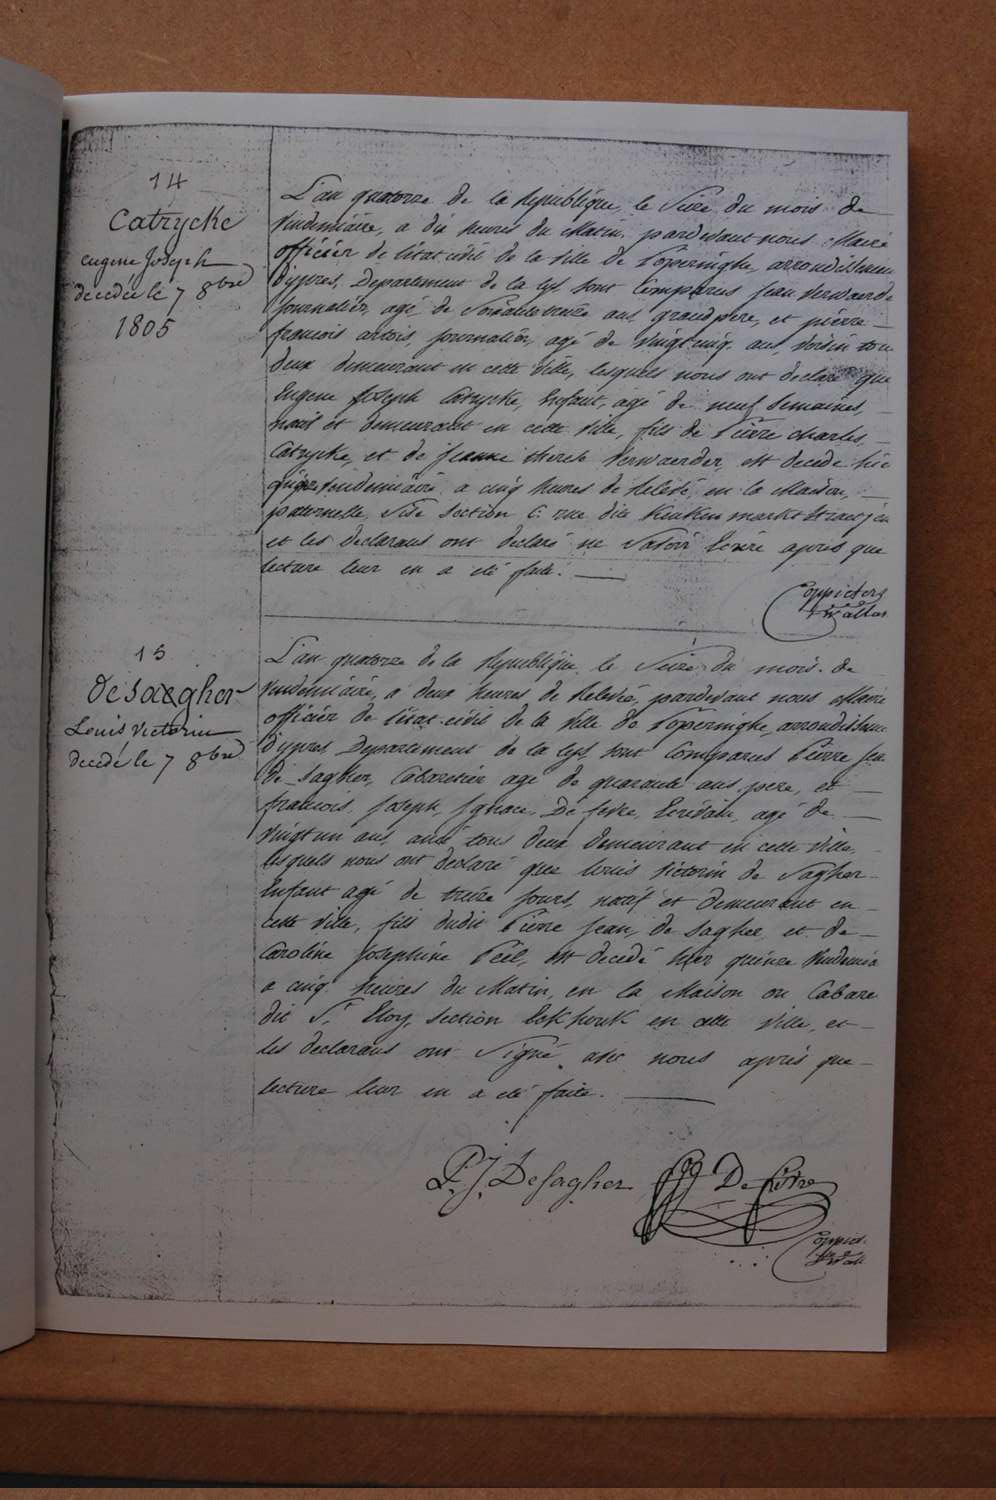 14
Catrycke
eugene Joseph
decedée le 7 8bre
1805
L'an quatorze de la Republique le Seize du mois de
Vindemiaire, a dix heures du Matin, pardevant nous Maire
officier de l'état civil de la ville de Poperinghe arrondissemen
d'ypres, Departement de la Lys, sont Comparus Jean Verwaerde
Journalier, agé de ans, grandpere, et pierre
francois artois, Journalier, agé de Vingtcinq ans, voisin tou
deux demeurant en cette Ville, lesquels nous ont declaré que
Eugene Joseph Catrycke, Enfant, agé de neuf Semaines,
natif et demeurant en cette Ville, fils de Pierre charles
Catrycke, et de Jeanne therese Verwaerder, est decedé hie
quinze Vindemiaire a cinq heures de Relevé, en la Maison,
paternelle, Sise Section C: rue dite Keuken markt straetjen
et les declarans ont declaré ne Savoir Ecrire apres que
lecture leur en a eté faite.
Coppieters
t'Wallas
15
Desaegher
Louis Victorin
decedé le 7 8bre
L'an quatorze de la Republique le Seize du mois de
Vindémiaire, a deux heures de Relevée, pardevant nous Maire
officier de l'état civil de la ville de Poperinghe arrondissem
d'ypres Departement de la Lys, sont Comparus Pierre Jea
de Sagher, Cabaretier agé de quarante ans, pere, et
francois Joseph Ignace De fevre, Ecrivain, agé de
Vingtun ans, ami tous deux demeurant en cette ville,
lesquels nous ont declaré que Louis Victorin de Sagher
Enfant agé de treize jours, natif et demeurant en
cette Ville, fils dudit Pierre Jean, de Sagher et de
Caroline Josephine Peel, est decedé hier quinze Vindemia
a cinq heures du Matin, en la Maison ou Cabare
dit St Eloy, Section en cette ville, et
les declarans ont Signé avec nous apres que
lecture leur en a eté faite.
P. J. DeSagher
De fevre
Coppiet
t'Wall